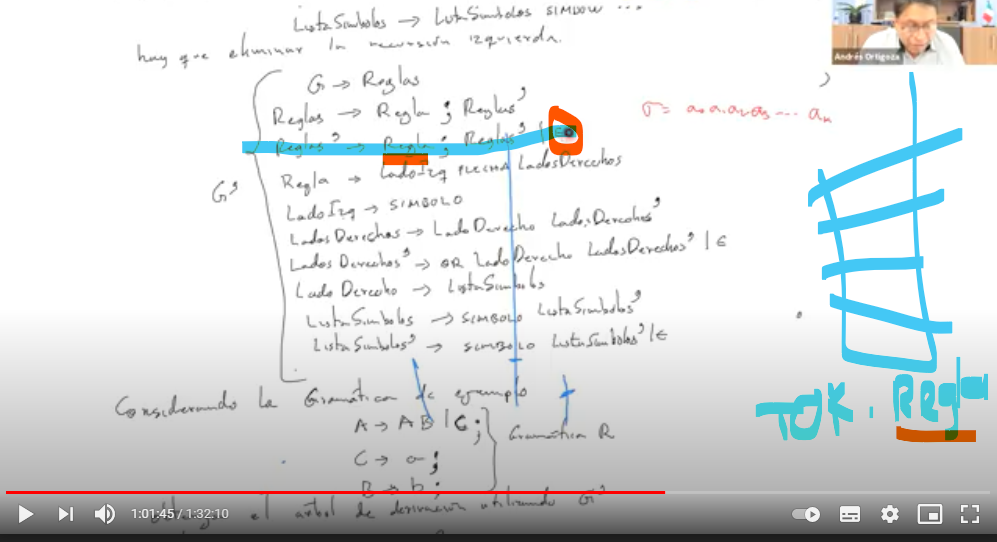 ListaSimbolos → ListaSimbolos SIMBOLO ...
hay que eliminar la recursión izquierda.
Andrés Ortigoza
G → Reglas
Reglas → Regla ; Reglas'
Reglas' → Regla ; Reglas' |
σ = a₀ a₁ a₂ a₃ ... aₙ
G'
Regla → LadoIzq FLECHA LadosDerechos
LadoIzq → SIMBOLO
LadosDerechos → LadoDerecho LadosDerechos'
LadosDerechos' → OR LadoDerecho LadosDerechos' | ε
LadoDerecho → ListaSimbolos
ListaSimbolos → SIMBOLO ListaSimbolos'
ListaSimbolos' → SIMBOLO ListaSimbolos' | ε
TOK. REgla
Considerando la Gramática de ejemplo
A → A B | C ;
Gramática R
C → a ;
B → b ;
1:01:45 / 1:32:10
el arbol de derivación utilizando G'